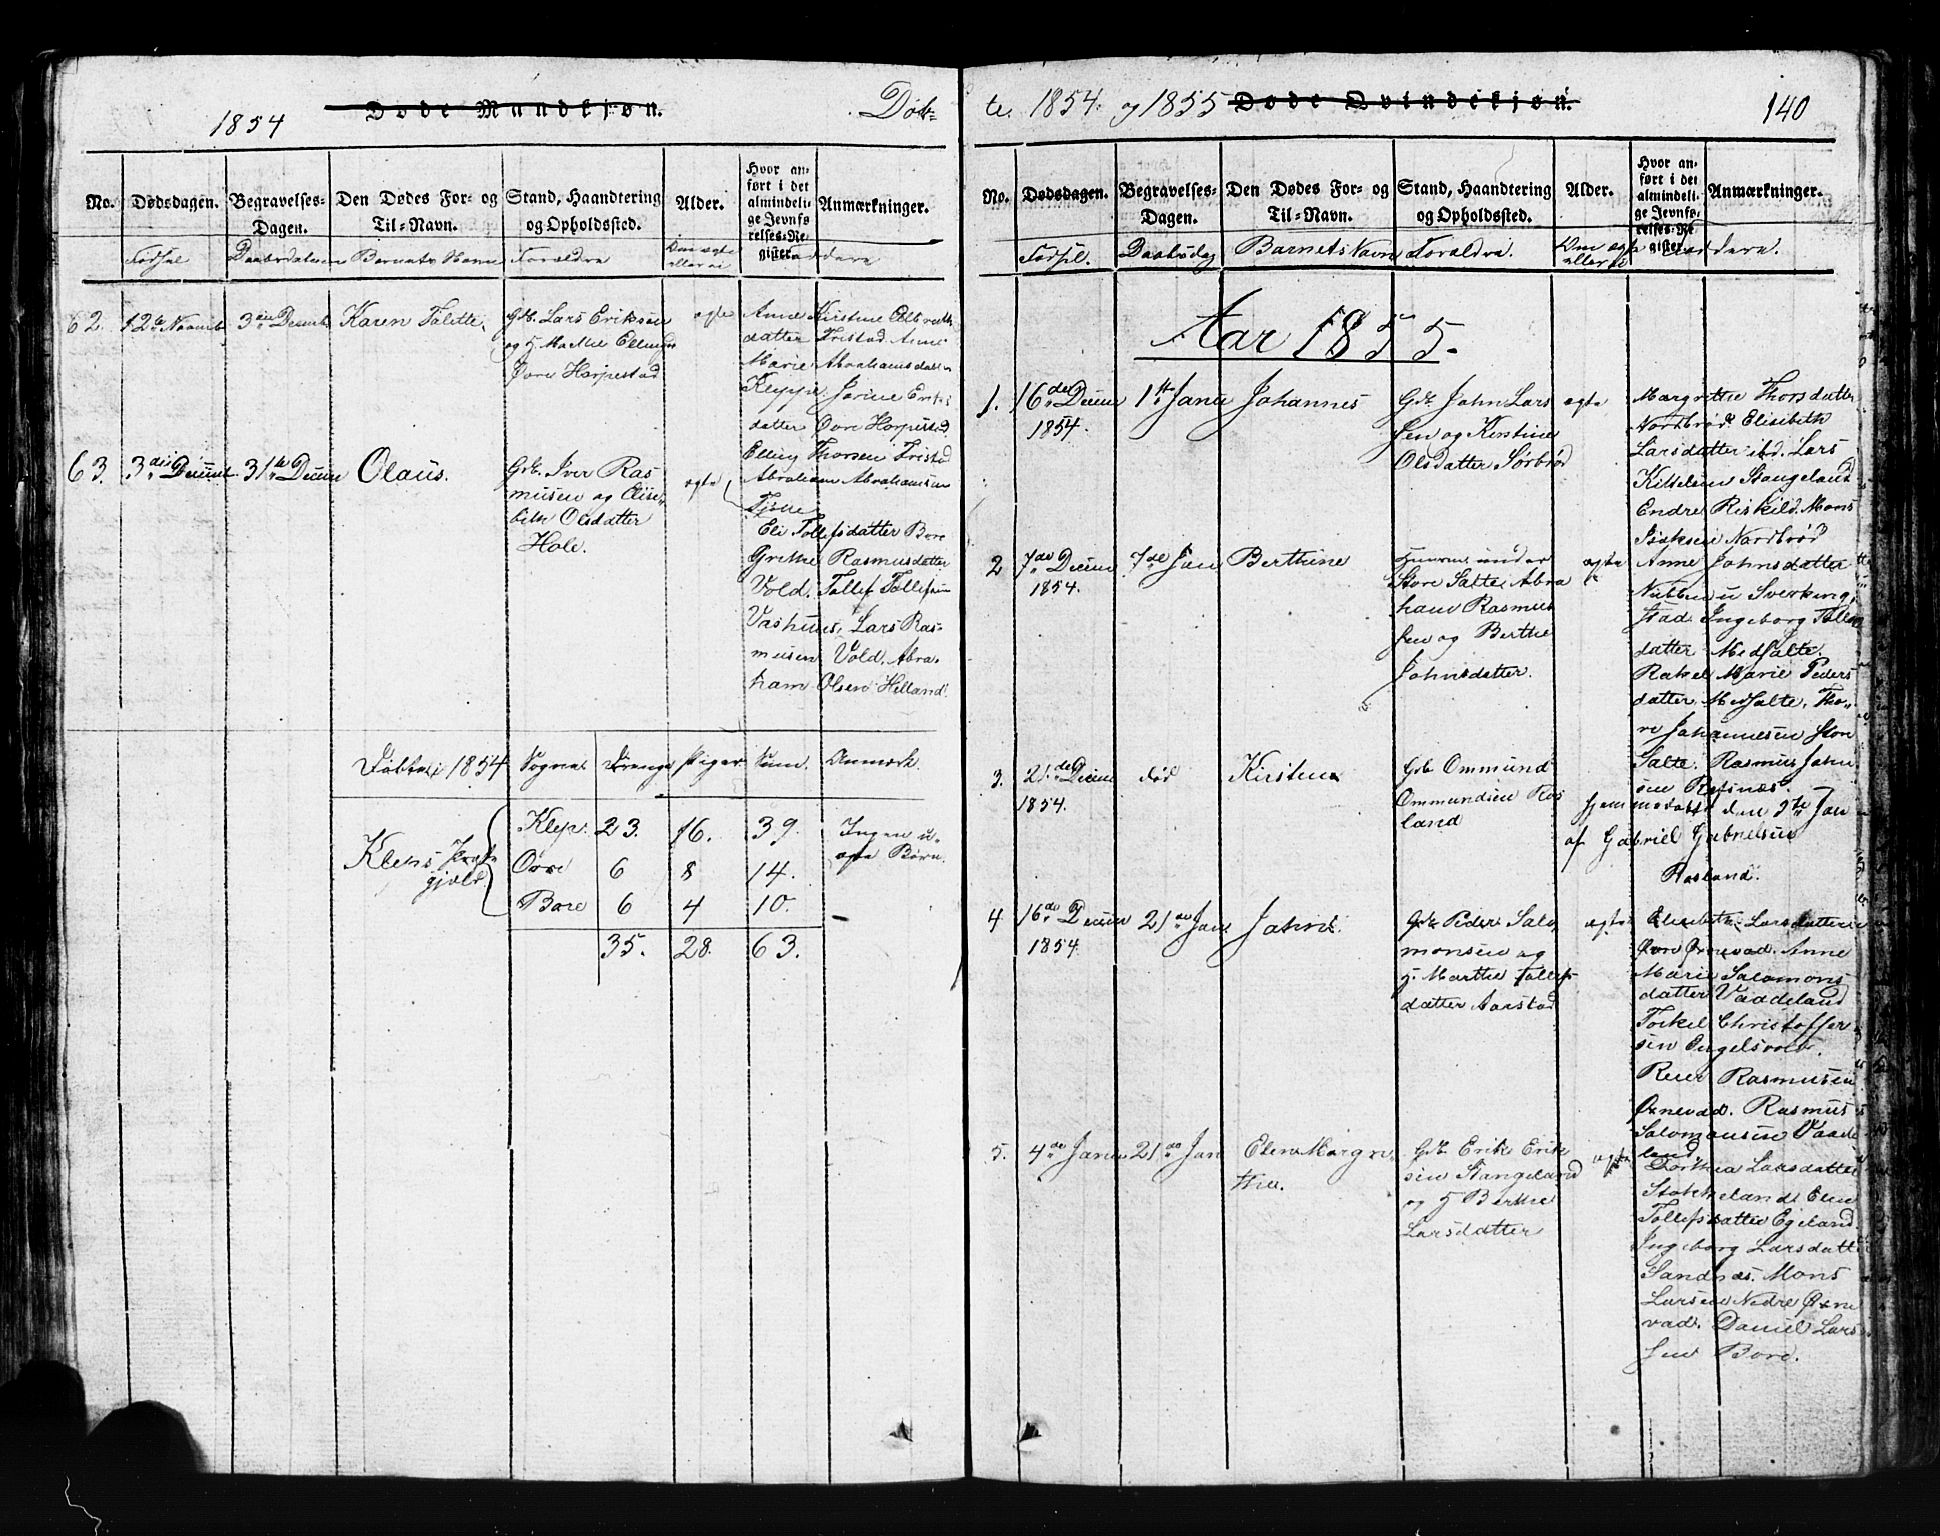 1854
Døde Mandkjøn.
Døb=
No.
Dødsdagen.
Begravelses-
Dagen.
Den Dødes For- og
Til=Navn.
Stand, Haandtering
og Opholdssted.
Alder.
Hvor an-
ført i det
almindeli-
ge Jevnfø-
relses-Re-
gister.
Anmærkninger.
Fødsel
Daabsdatum
Barnets Navn
Forældre
Om ægte
eller ei
Faddere
62.
12te Novemb
3die Decemb
Karen Talette,
Grb. Lars Eriksen
Øvre Harpestad
ægte
Anne Kirstine Olbreths
datter Tristad. Anne
Marie Abrahamsdatter
Kleppe Jorine Eriks
datter Øvre Horpestad
Elling Thorsen Tristad
Abraham Abrahamsen
Tjøtte
63.
3die Decemb
31te Decem
Olaus.
Grb. Iver Ras
musen og Elisa-
beth Olsdatter
Hole.
ægte
Eli Tollefsdatter Bore
Grethe Rasmusdatter
Vold. Tollef Tollefsen
Vashuus, Lars Ras-
musen Vold. Abra-
ham Olsen Helland.
Døbte i 1854
Sogne
Drenge
Piger
Sum.
Anmærk.
Kleps Præste
gjæld.
Klep. 23. 16. 39.
Orre 6 8 14.
Bore 6 4 10.
35. 28. 63.
Ingen u-
ægte Børn.
te 1854 og 1855
Døde Qvindekjøn.
140
No.
Dødsdagen.
Begravelses-
Dagen.
Den Dødes For- og
Til=Navn.
Stand, Haandtering
og Opholdssted.
Alder.
Hvor an-
ført i det
almindeli-
ge Jevnfø-
relses-Re-
gister.
Anmærkninger.
Fødsel.
Daabsdag
Barnets Navn
Forældre.
Om ægte
eller ei
Faddere.
Aar 1855.
1.
16de Decem
1854.
1ste Janu
Johannes
Grb. John Lars
sen og Kirstine
Olsdatter Sørbrød
ægte
Margrethe Thorsdatter
Nordbrød. Elisabeth
Larsdatter ibd. Lars
Kittelsen Stangeland
Endre Riskild. Mons
Isaksen Nordbrød
2
7de Decem
1854.
7de Jan
Berthine
Huusm. under
Store Salte, Abra
ham Rasmus
sen og Berthe
Johnsdatter.
ægte
Anne Johnsdatter
datter Medsalte.
Rakel Marie Peders
datter Medsalte, Tho-
re Johannesen Store
Salte. Rasmus John
sen Refsnæs.
3.
21de Decem
1854.
død
Kirstena
Grb Ommund
Ommundsen Ros
land
Hjemmedøbt den 5te Jan
af Gabriel Gabrielsen
Rosland.
4
16de Decem
1854
21de Jan
John.
Grb Peder Salo
monsen og
H. Marthe Tollefs
datter Aarstad
ægte
Elisabeth Larsdatter
Øvre Øxnevad. Anne
Marie Salomons
datter Vaadeland
Torkel Christoffer
sen Engelsvold.
Reier Rasmusen
Øxnevad. Rasmus
Salomonsen Vaade
land.
5.
4de Janu
21de Jan
Elen Margre
the.
Grb Erik Erik
sen Stangeland
og H Berthe
Larsdatter
ægte
Dorthea Larsdatter
Stokkeland. Elen
Tollefsdatter Egeland.
Ingeborg Larsdatter
Sandnæs. Mons
Larsen Nedre Øxne
vad. Daniel Lars
sen Bore.